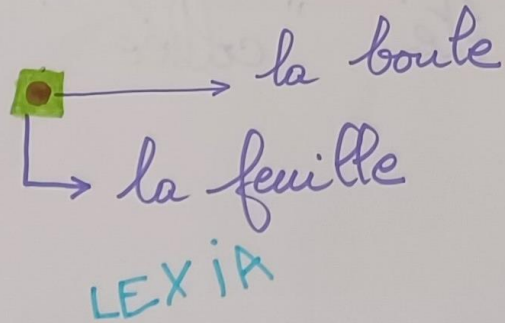 la boule
la feuille
LEXiA